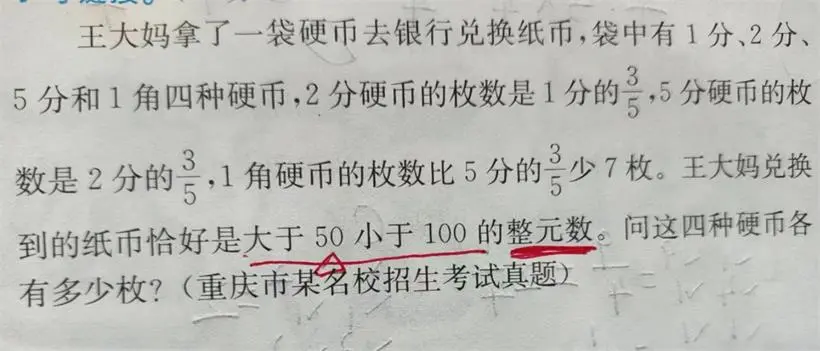 王大妈拿了一袋硬币去银行兑换纸币,袋中有1分、2分、
5分和1角四种硬币,2分硬币的枚数是1分的3/5,5分硬币的枚
数是2分的3/5,1角硬币的枚数比5分的3/5少7枚。王大妈兑换
到的纸币恰好是大于50小于100的整元数。问这四种硬币各
有多少枚?(重庆市某名校招生考试真题)